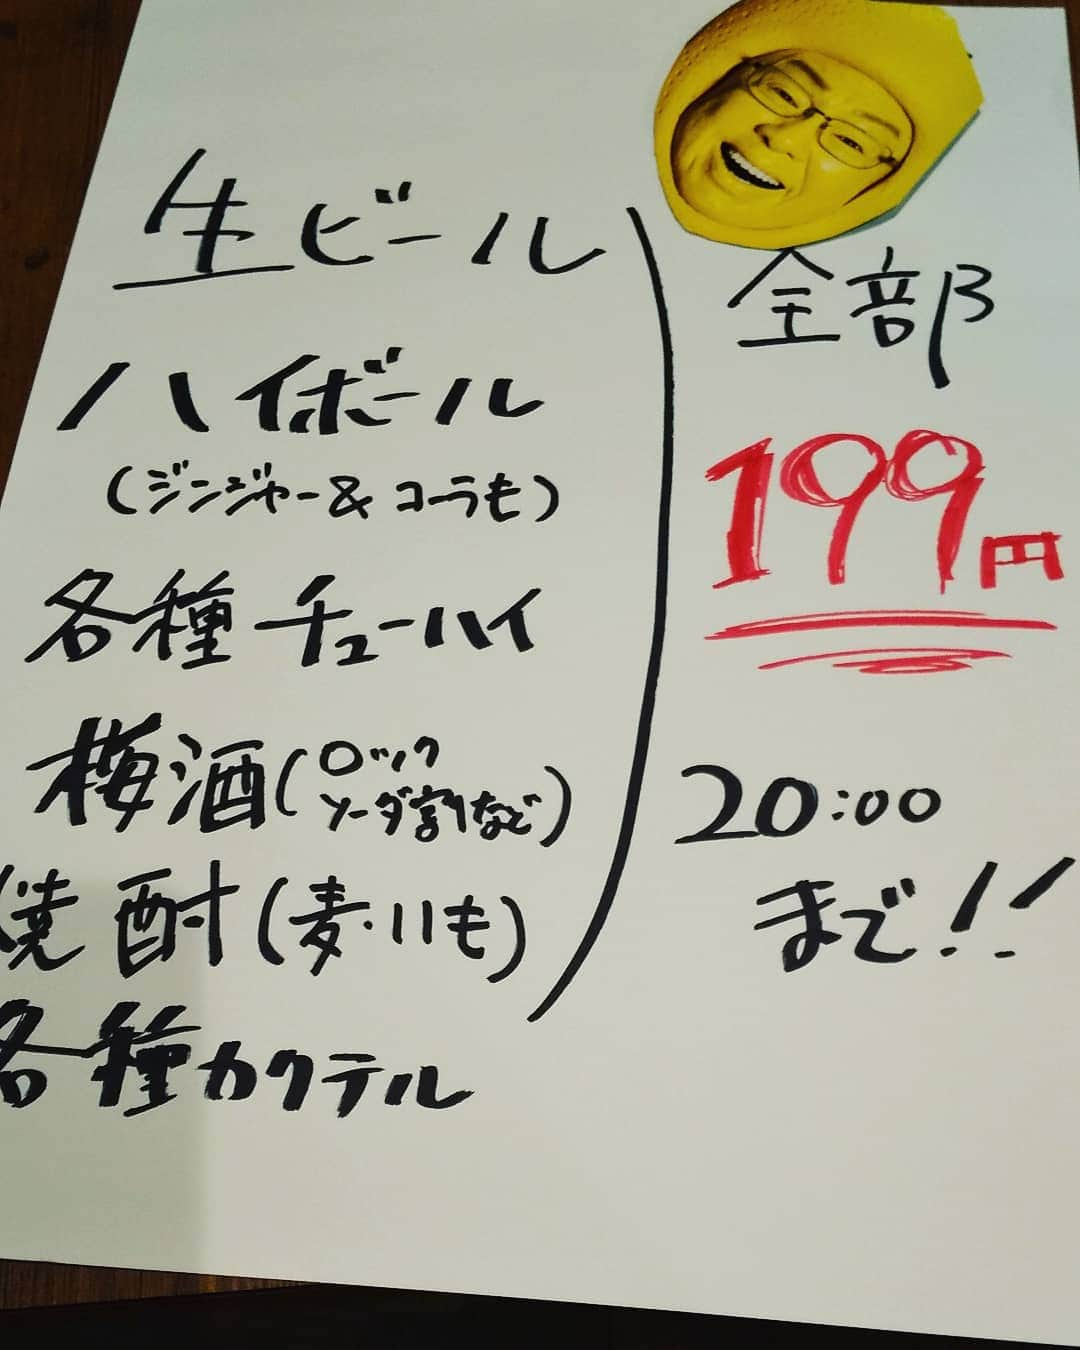 生ビール
ハイボール
(ジンジャー&コーラも)
各種チューハイ
梅酒(ロック
ソーダ割りなど)
焼酎(麦・いも)
各種カクテル
全部
199円
20:00
まで!!